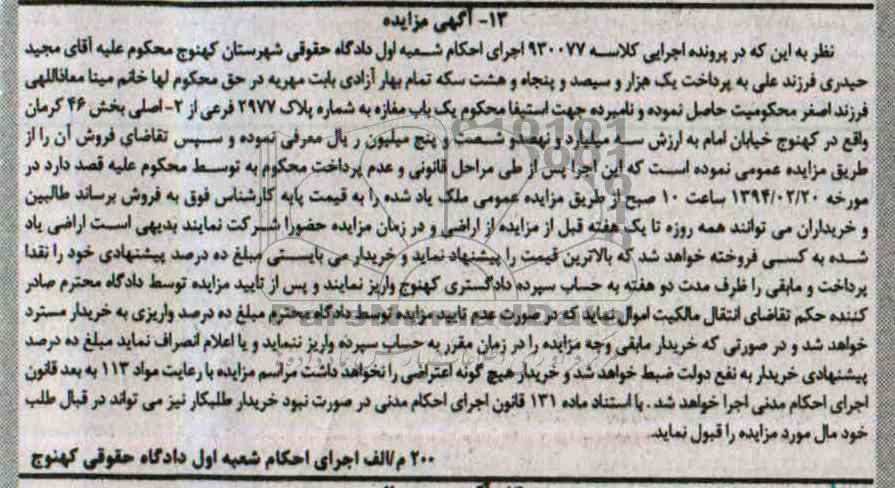 ۱۳- آگهی مزایده
نظر به این که در پرونده اجرایی کلاسه ۹۳۰۰۷۷ اجرای احکام شعبه اول دادگاه حقوقی شهرستان کهنوج محکوم علیه آقای مجید
حیدری فرزند علی به پرداخت یک هزار و سیصد و پنجاه و هشت سکه تمام بهار آزادی بابت مهریه در حق محکوم لها خانم مینا معاذاللهی
فرزند اصغر محکومیت حاصل نموده و نامبرده جهت استیفا محکوم یک باب مغازه به شماره پلاک ۲۹۷۷ فرعی از ۲- اصلی بخش ۴۶ کرمان
واقع در کهنوج خیابان امام به ارزش سه میلیارد و نهصدو شصت و پنج میلیون ریال معرفی نموده و سپس تقاضای فروش آن را از
طریق مزایده عمومی نموده است که این اجرا پس از طی مراحل قانونی و عدم پرداخت محکوم به توسط محکوم علیه قصد دارد در
مورخه ۱۳۹۴/۰۲/۲۰ ساعت ۱۰ صبح از طریق مزایده عمومی ملک یاد شده را به قیمت پایه کارشناس فوق به فروش برساند طالبین
و خریداران می توانند همه روزه تا یک هفته قبل از مزایده از اراضی و در زمان مزایده حضورا شرکت نمایند بدیهی است اراضی یاد
شده به کسی فروخته خواهد شد که بالاترین قیمت را پیشنهاد نماید و خریدار می بایستی مبلغ ده درصد پیشنهادی خود را نقدا
پرداخت و مابقی را ظرف مدت دو هفته به حساب سپرده دادگستری کهنوج واریز نمایند و پس از تایید مزایده توسط دادگاه محترم صادر
کننده حکم تقاضای انتقال مالکیت اموال نماید که در صورت عدم تایید مزایده توسط دادگاه محترم مبلغ ده درصد واریزی به خریدار مسترد
خواهد شد و در صورتی که خریدار مابقی وجه مزایده را در زمان مقرر به حساب سپرده واریز ننماید و یا اعلام انصراف نماید مبلغ ده درصد
پیشنهادی خریدار به نفع دولت ضبط خواهد شد و خریدار هیچ گونه اعتراضی را نخواهد داشت مراسم مزایده با رعایت مواد ۱۱۳ به بعد قانون
اجرای احکام مدنی اجرا خواهد شد . با استناد ماده ۱۳۱ قانون اجرای احکام مدنی در صورت نبود خریدار طلبکار نیز می تواند در قبال طلب
خود مال مورد مزایده را قبول نماید.
۲۰۰ م/الف اجرای احکام شعبه اول دادگاه حقوقی کهنوج